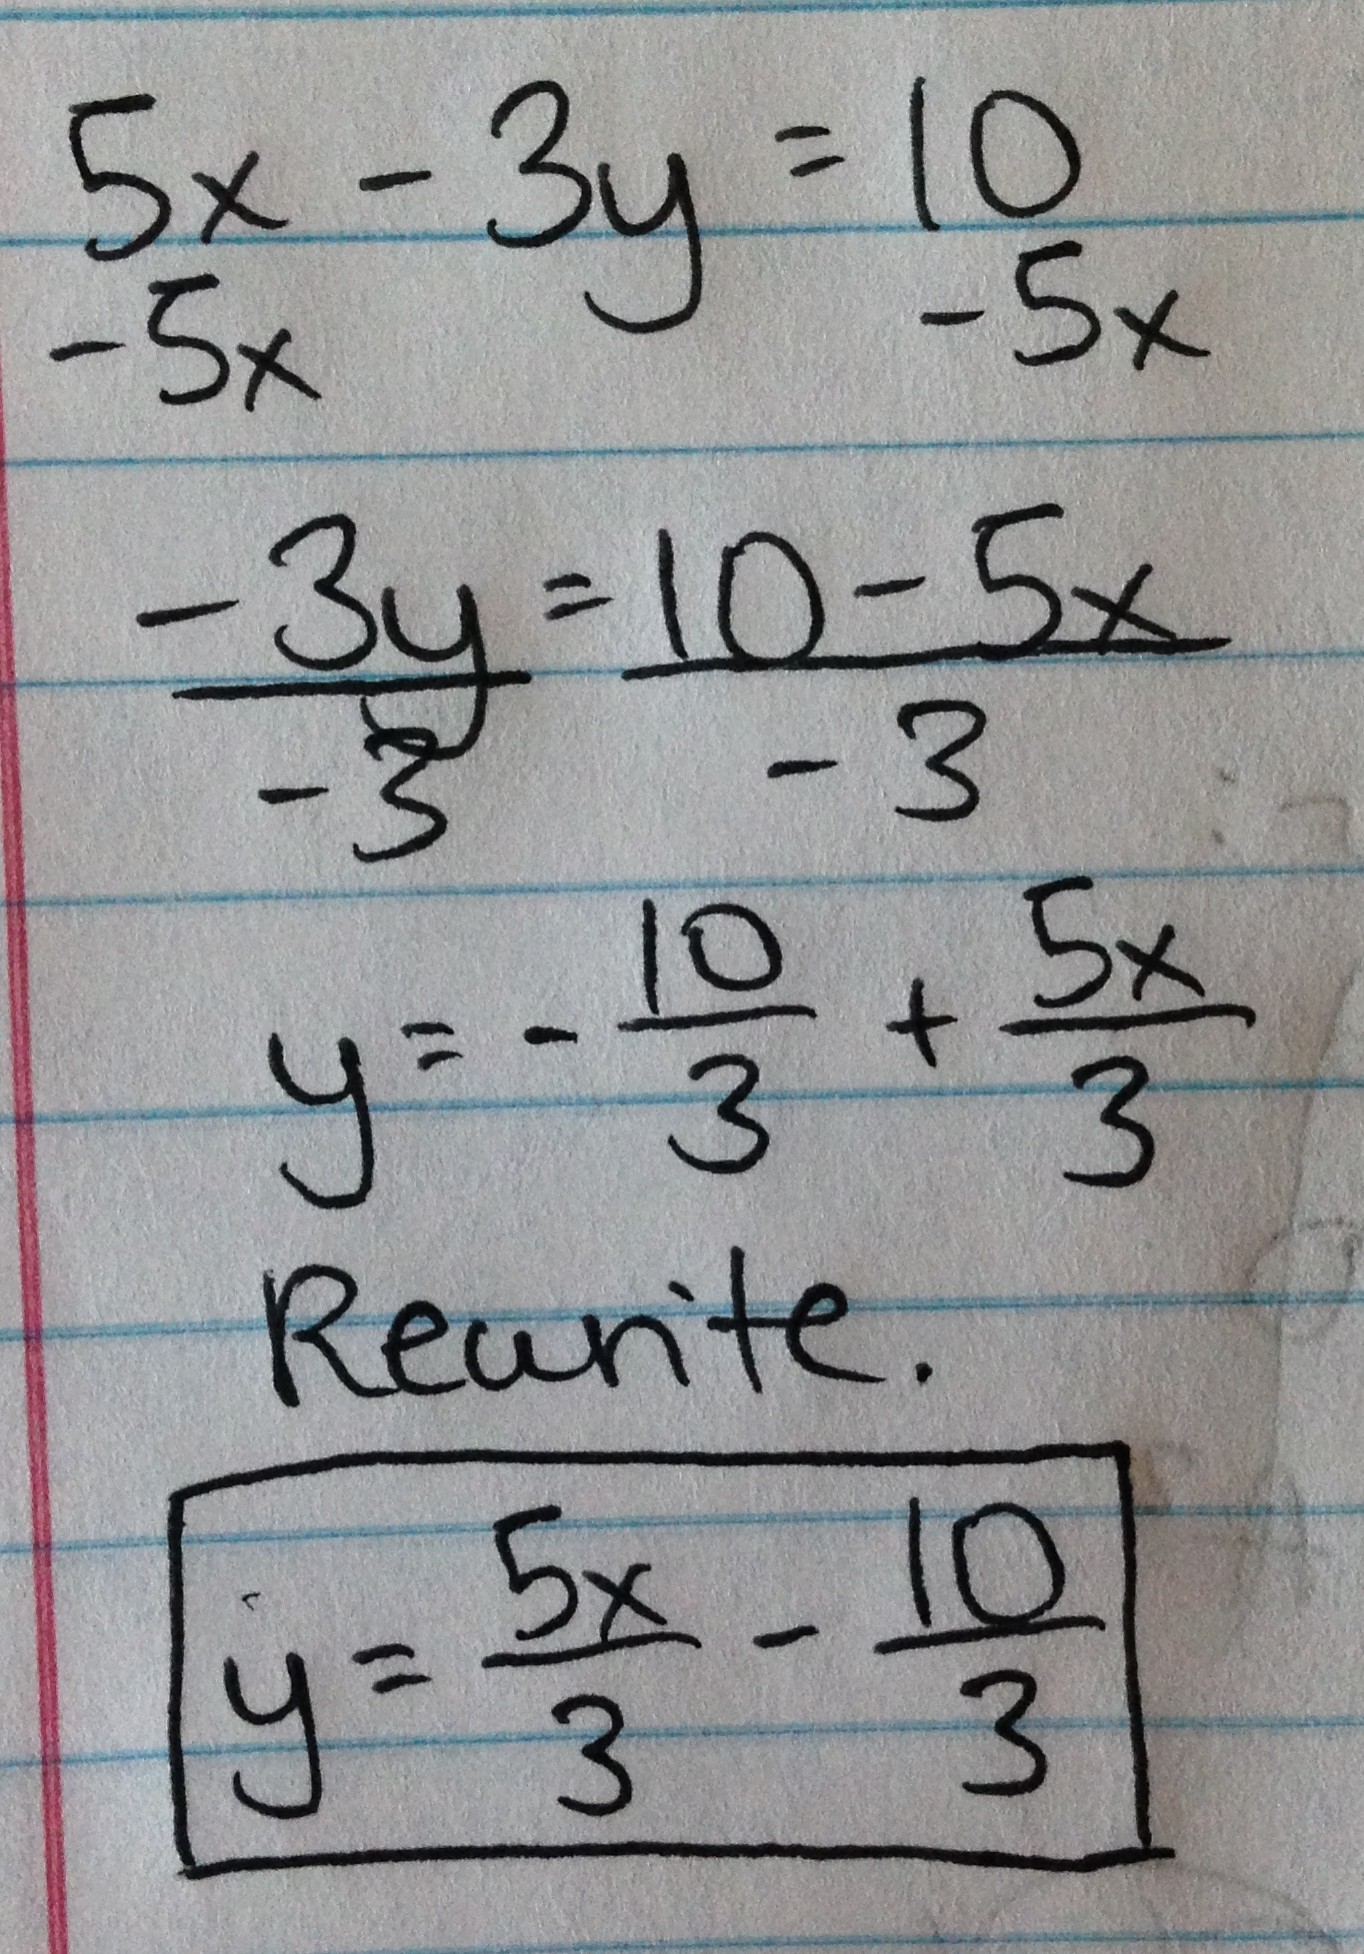 5x - 3y = 10
-5x -5x
-3y = 10 - 5x
-3 -3
y = - 10/3 + 5x/3
Rewrite.
y = 5x/3 - 10/3